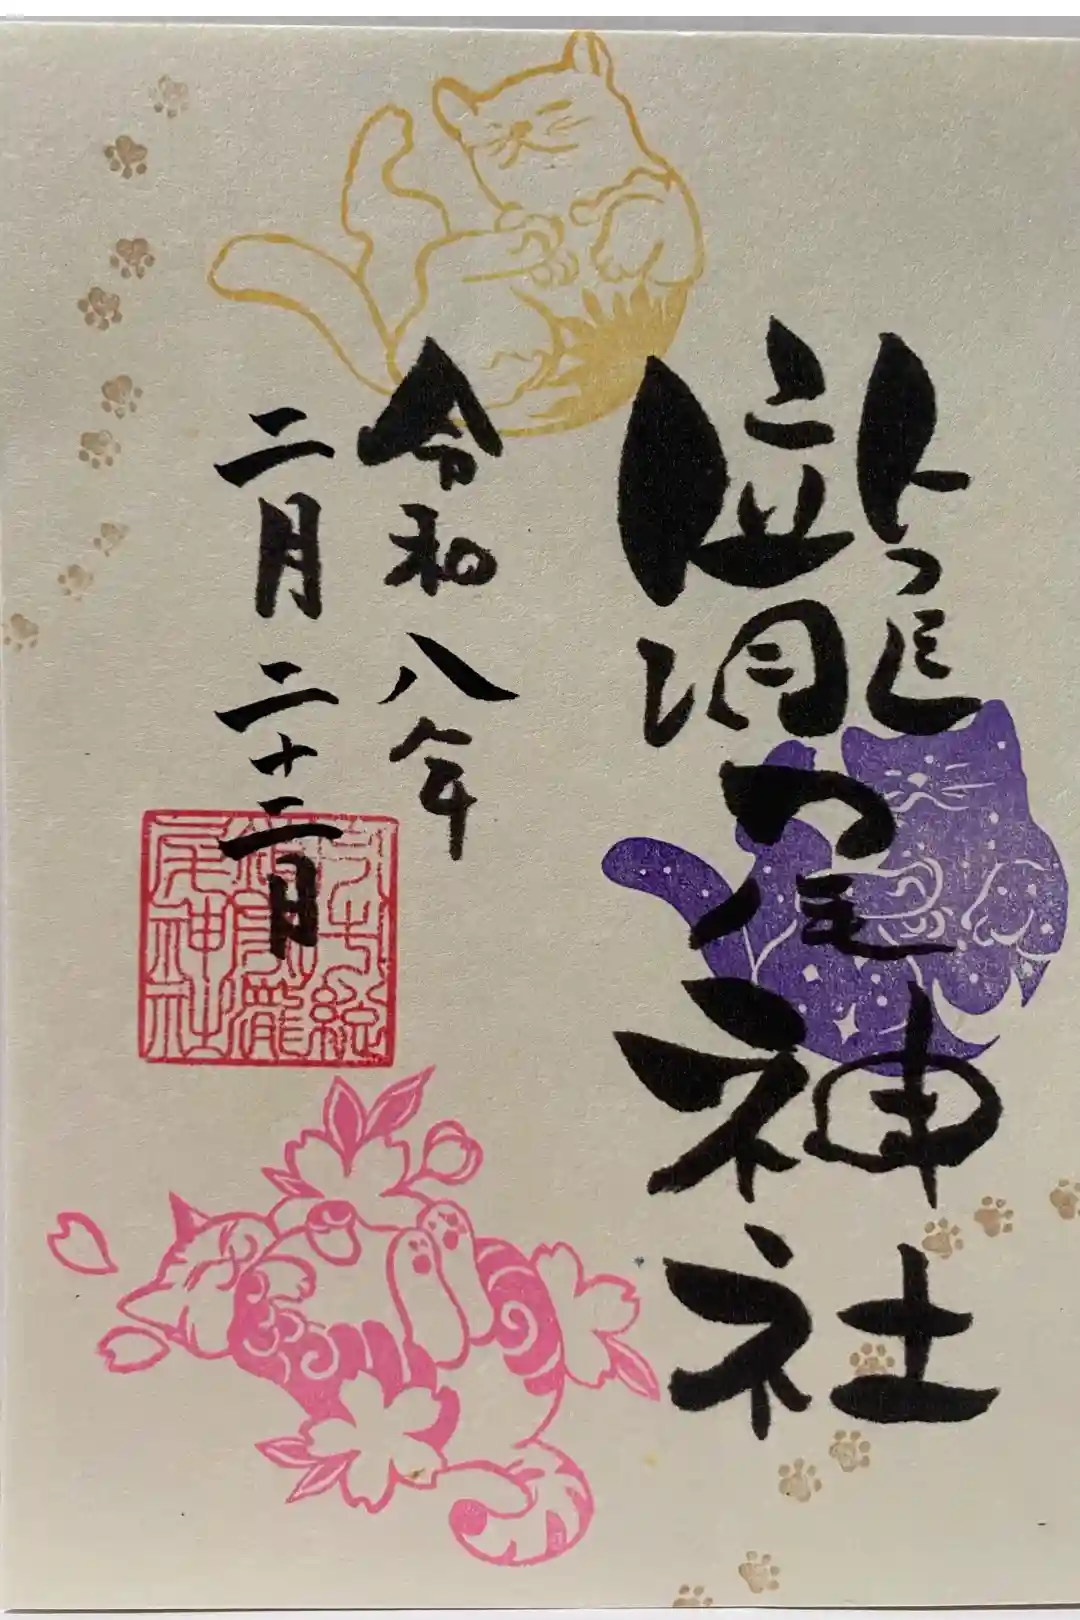 瀧尾神社
令和八年
二月二十二月
尾神社